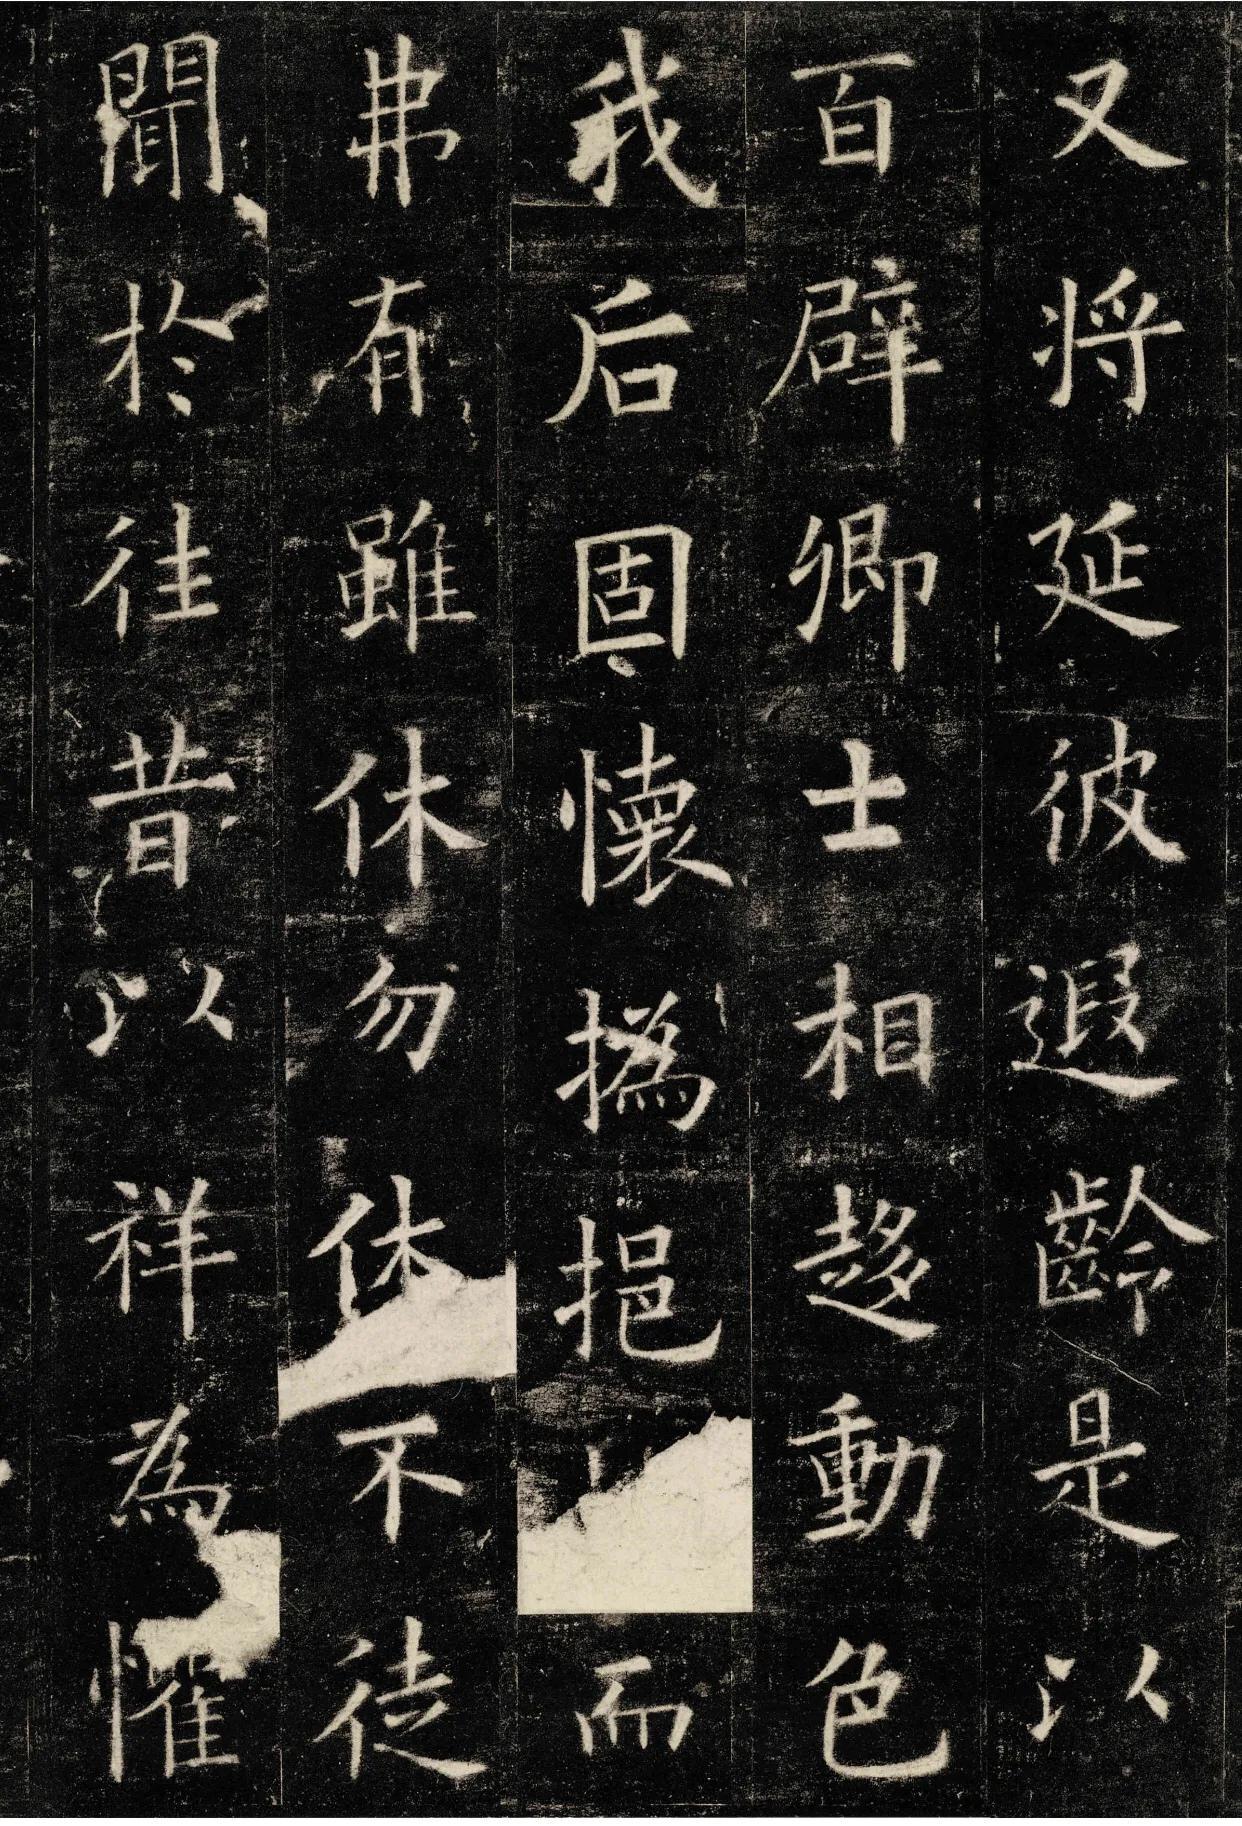 又将延彼遐齡是以
百辟卿士相趍動色
我后固懷撝挹而
弗有雖休勿休不徒
聞於往昔以祥為懼